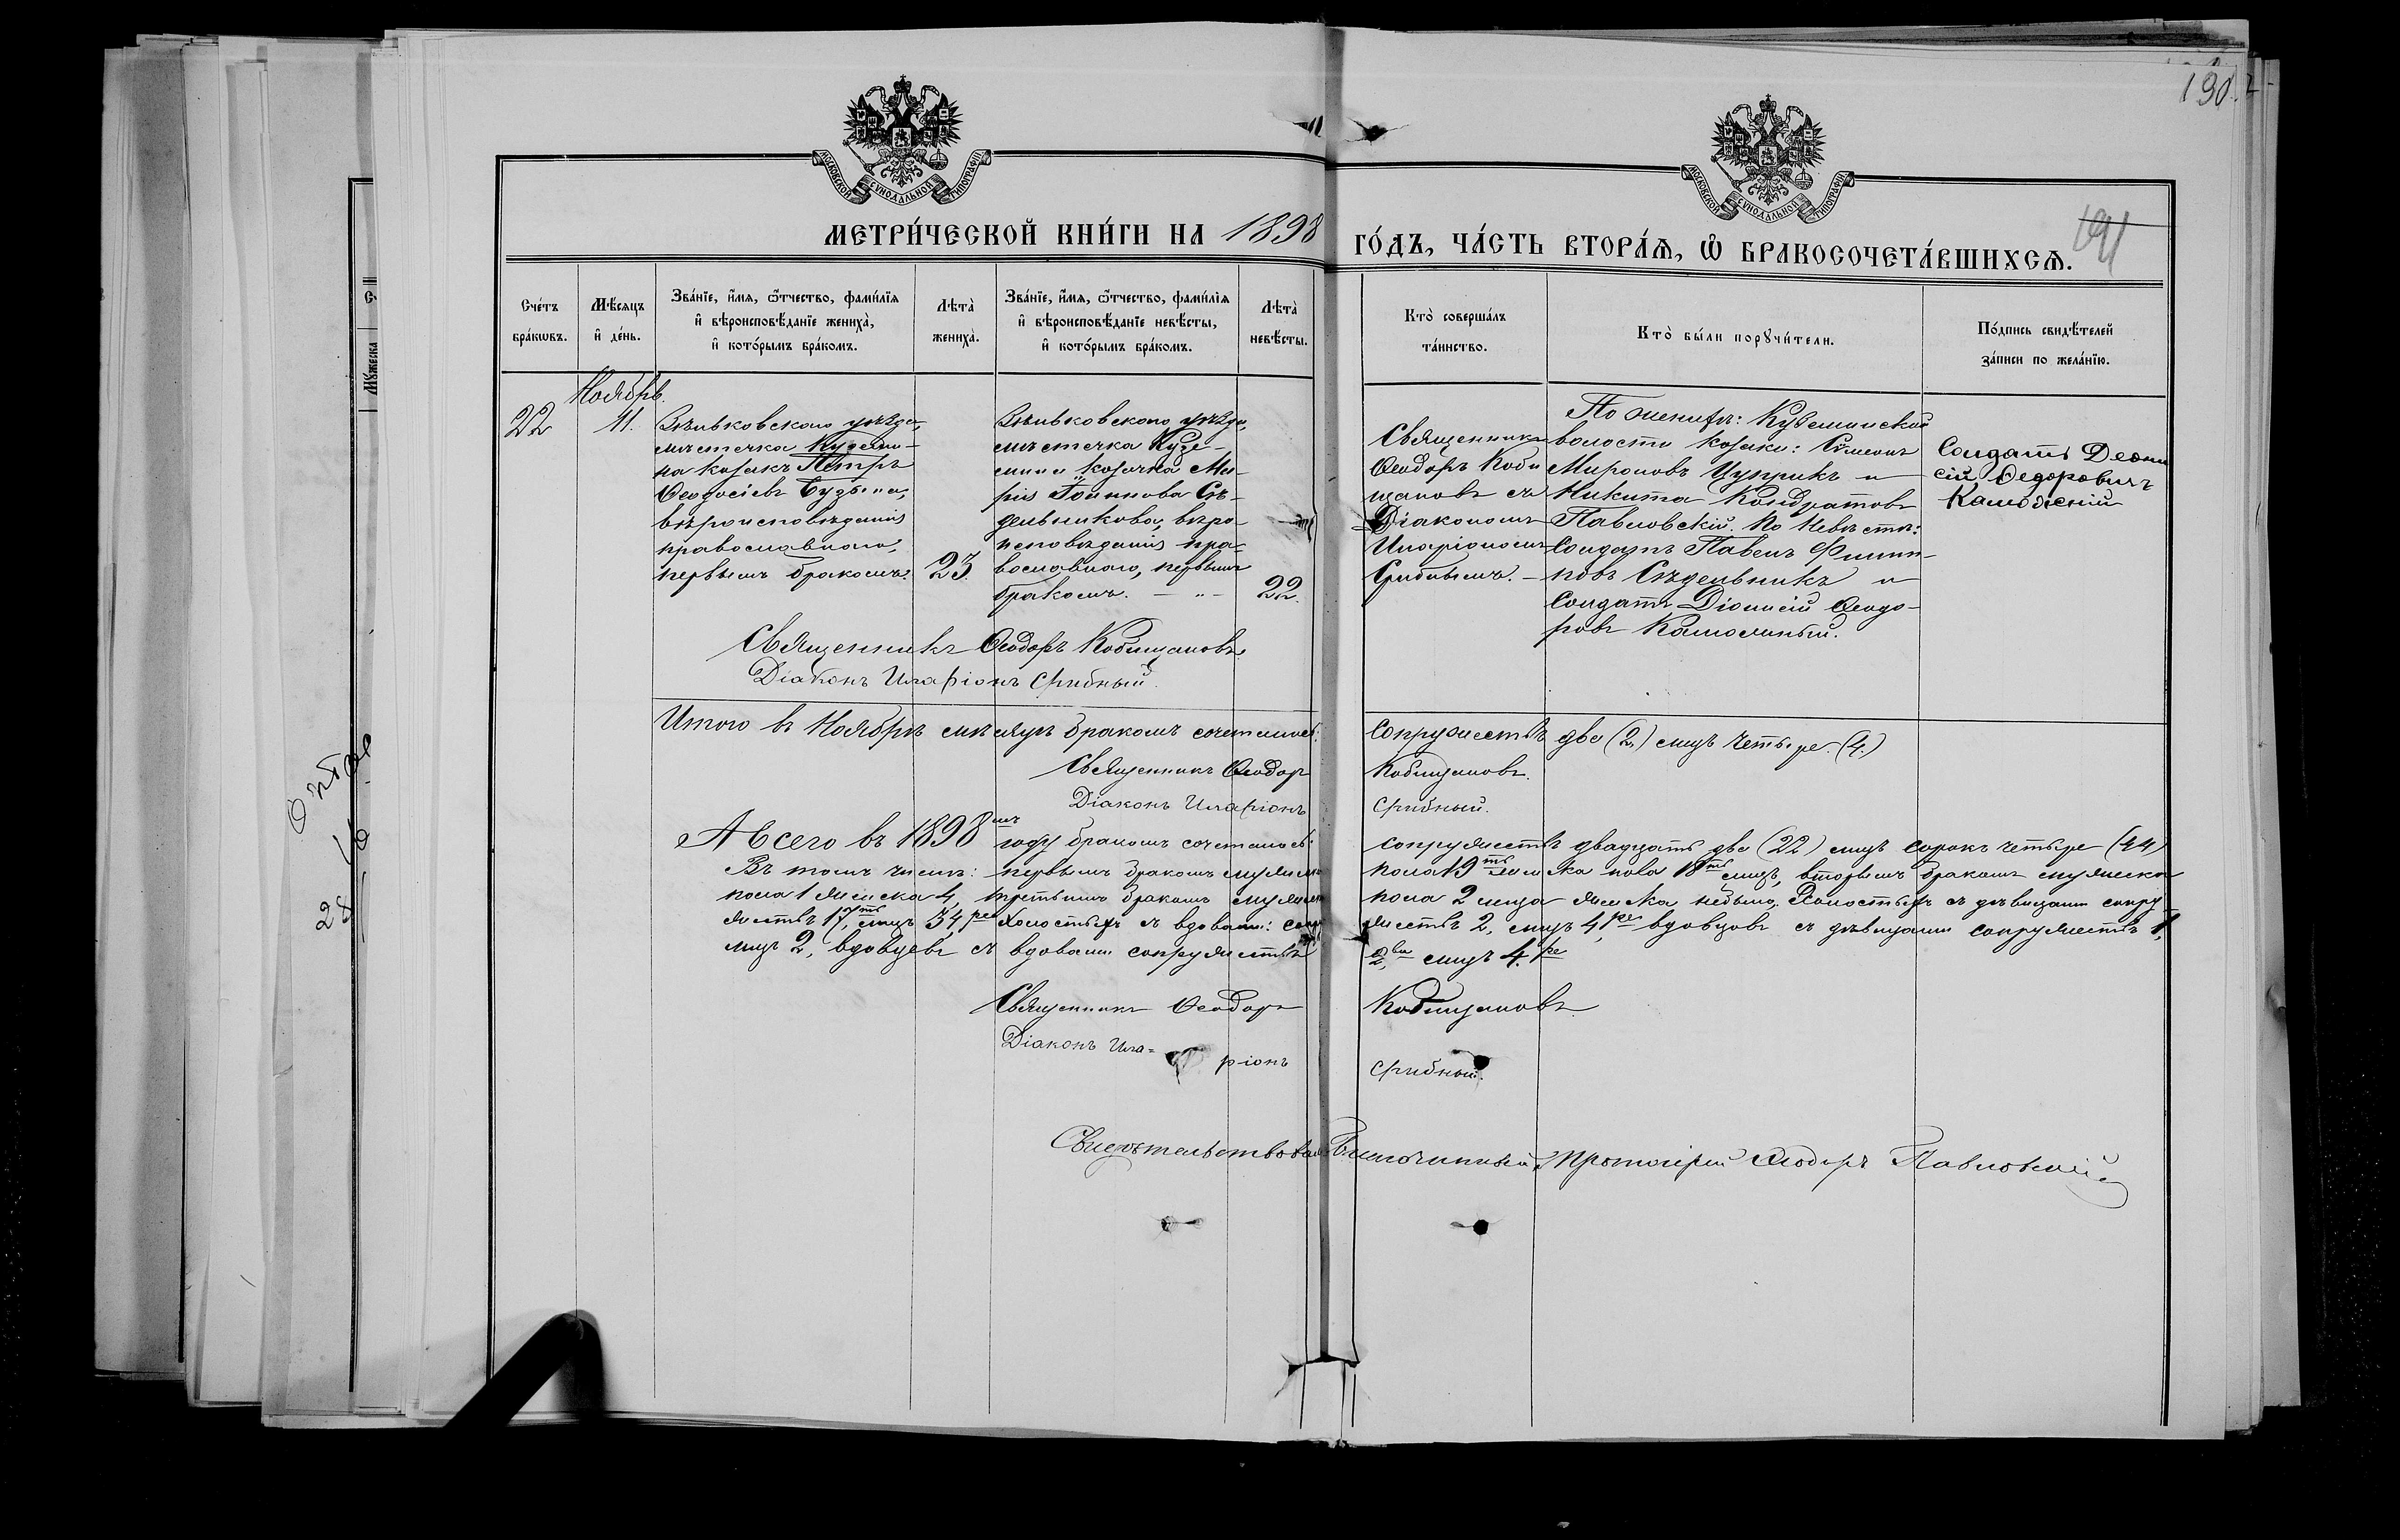 190.
191
МОСКОВСКОЙ СѴНОДАЛЬНОЙ ТИПОГРАФІИ
МОСКОВСКОЙ СѴНОДАЛЬНОЙ ТИПОГРАФІИ
МЕТРИ́ЧЕСКОЙ КНИ́ГИ НА 1898 ГО́ДЪ, ЧА́СТЬ ВТОРА́Ѧ, Ѽ БРАКОСОЧЕТА́ВШИХСѦ.
Сче́тъ
бра́кѡвъ.
Мѣ́сяцъ
и҆ де́нь.
Зва́нїе, и҆́мѧ, ѻ҆́тчество, фами́лїѧ
и҆ вѣроисповѣ́данїе жениха̀,
и҆ кото́рымъ бра́комъ.
Лѣта̀
жениха̀.
Зва́нїе, и҆́мѧ, ѻ҆́тчество, фами́лїѧ
и҆ вѣроисповѣ́данїе невѣ́сты,
и҆ кото́рымъ бра́комъ.
Лѣта̀
невѣ́сты.
Кто̀ соверша́лъ
та́инство.
Кто̀ бы́ли порꙋчи́тели.
По́дпись свидѣ́телей
за́писи по жела́нїю.
22
Ноябрь.
11.
Зѣньковскаго уѣзда,
мѣстечка Куземи-
на козакъ Петръ
Ѳеодосіевъ
вѣроисповѣданія
православнаго,
первымъ бракомъ.
23.
Зѣньковскаго уѣзда,
мѣстечка Кузе-
мина козачка Ма-
рія Іоаннова Сѣ-
дельникова, вѣро-
исповѣданія пра-
вославнаго, первымъ
бракомъ. — „ —
22.
Священникъ
Ѳеодоръ Коби
щановъ съ
Діакономъ
Иларіономъ
Срибнымъ. —
По женихѣ: Куземинской
волости козаки: Сѵмеонъ
Мироновъ Чуприкъ и
Никита Кондратовъ
Павловскій. По Невѣстѣ:
Солдатъ Павелъ Филип-
повъ Сѣдельникъ и
Солдатъ Діонисій Ѳеодо-
ровъ
Солдатъ Деони
сій Ѳедоровичъ
Священникъ Ѳеодоръ Кобищановъ
Діаконъ Иларіонъ Срибный.
Итого въ Ноябрѣ мѣсяцѣ бракомъ сочеталось: Сопружествъ два (2) лицъ четыре. (4.)
Священникъ Ѳеодоръ Кобищановъ.
Діаконъ Иларіонъ Срибный.
А всего въ 1898мъ году бракомъ сочеталось: сопружествъ двадцать два (22) лицъ сорокъ четыре (44)
Въ томъ числѣ: первымъ бракомъ мужеска пола 19ть женска пола 18ть лицъ, вторымъ бракомъ мужеска
пола 1 женска 4, третьимъ бракомъ мужеска пола 2 лица женска небыло. Холостыхъ съ дѣвицами сопру-
жествъ 17ть, лицъ 34ре, холостыхъ съ вдовами: сопру жествъ 2, лицъ 4ре, вдовцовъ съ дѣвицами сопружествъ 1,
лицъ 2, вдовцевъ съ вдовами сопружествъ 2ва лицъ 4ре
Священникъ Ѳеодоръ Кобищановъ
Діаконъ Ила= ріонъ Срибный.
Свидѣтельствовалъ Благочинный, Протоіерей Ѳеодоръ Павловскій